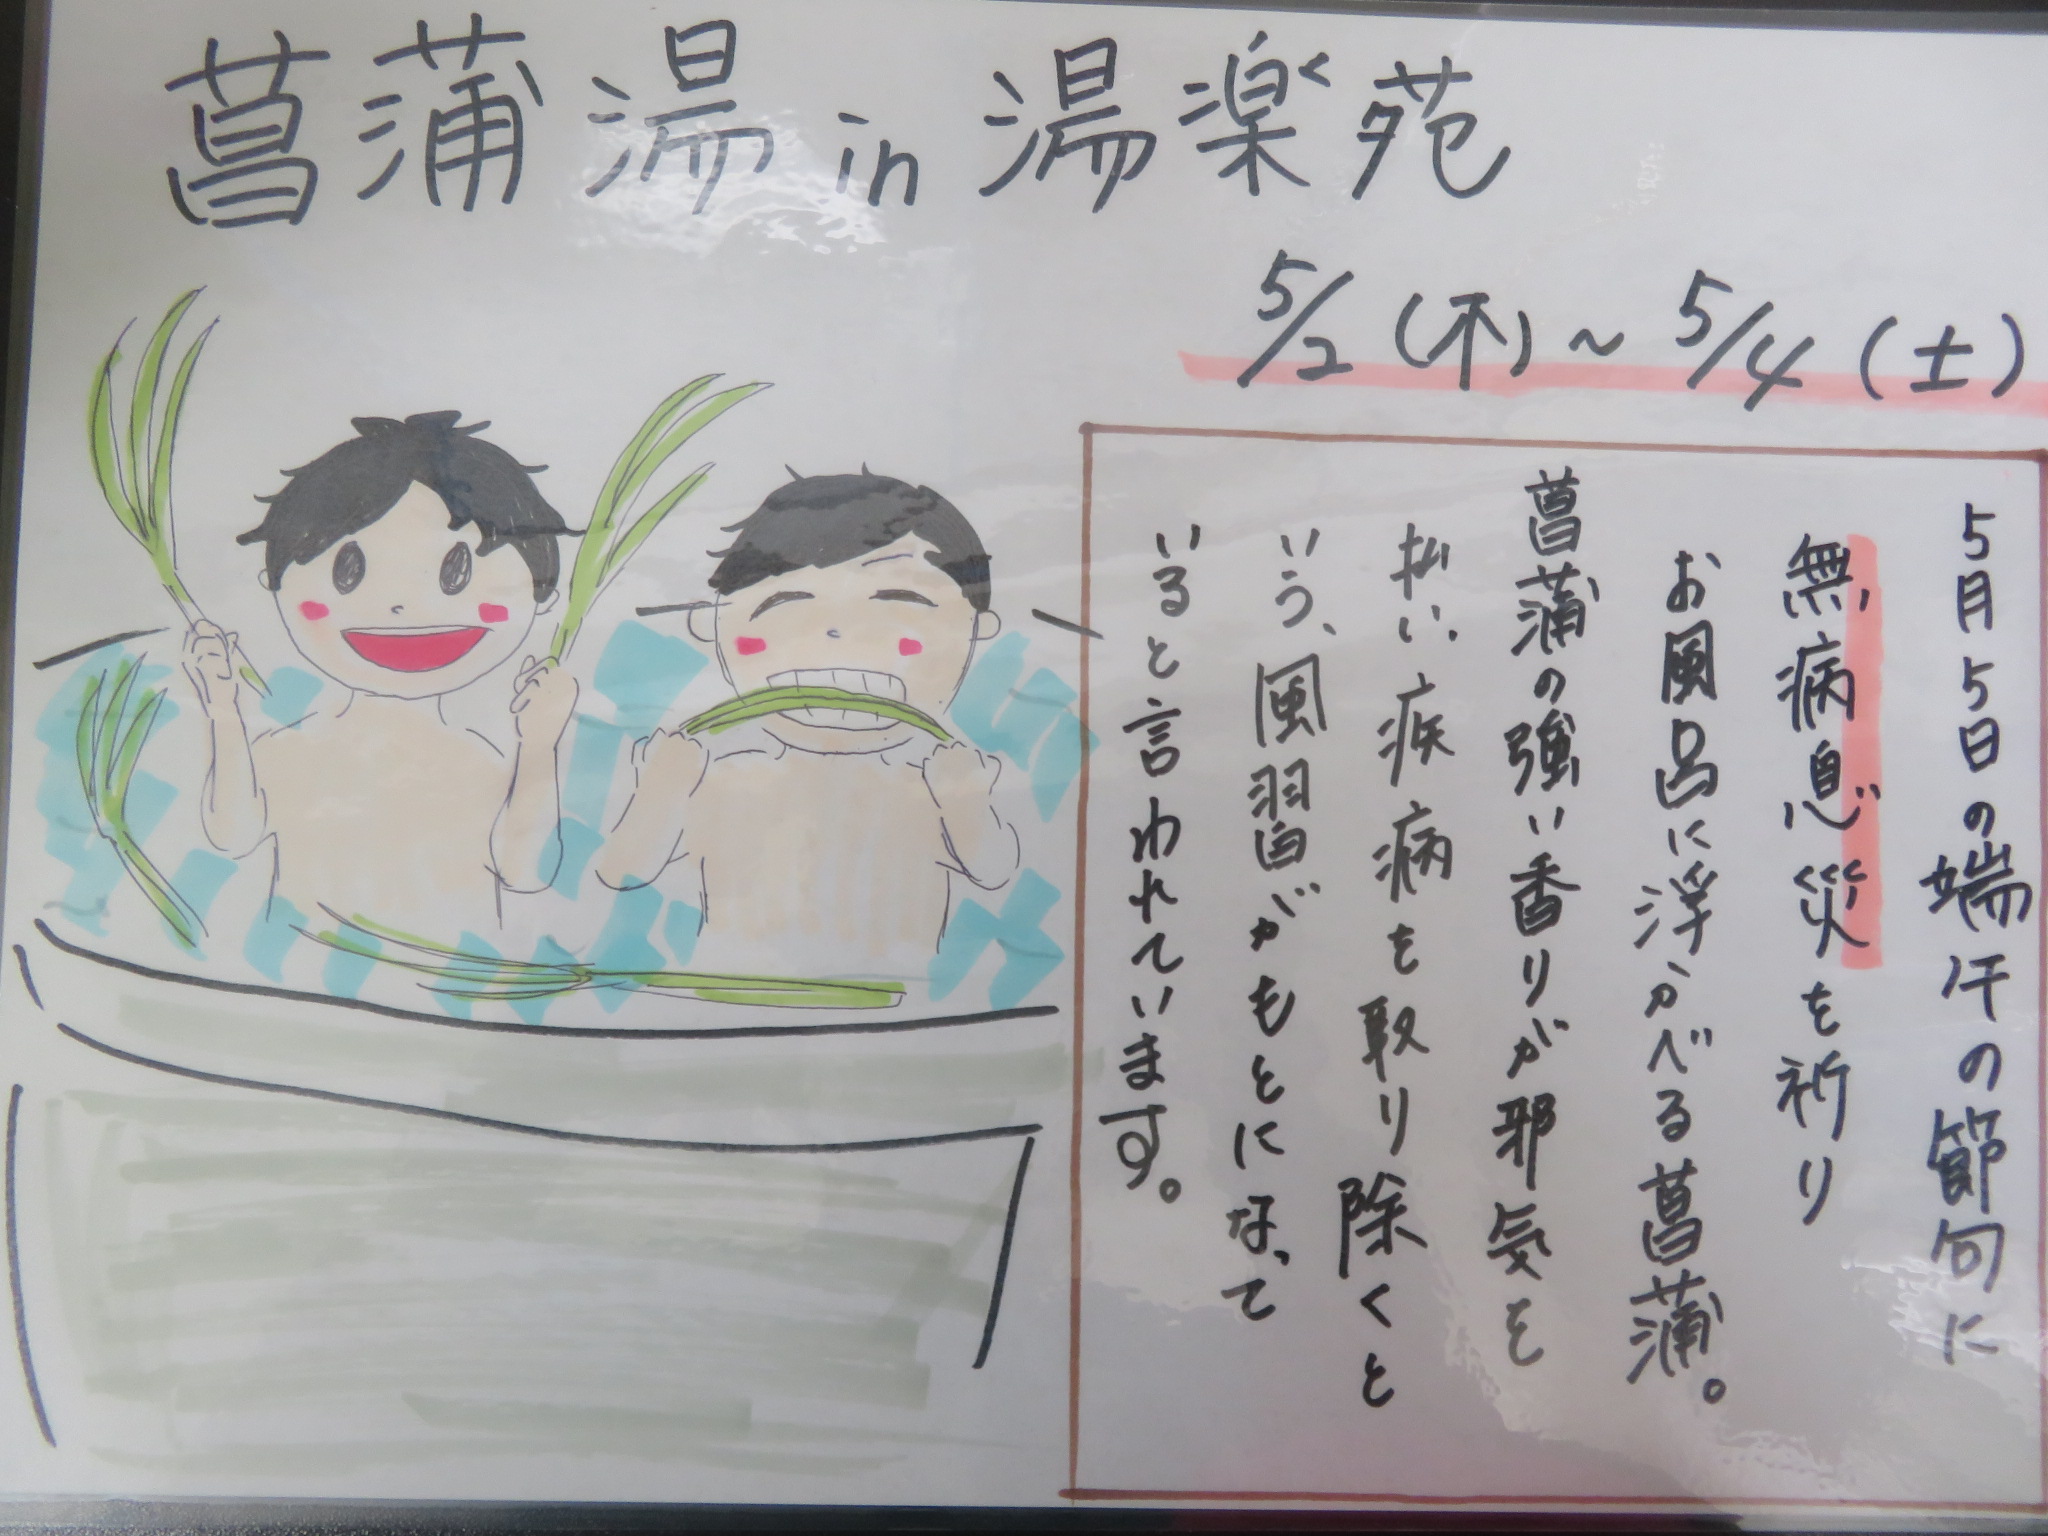 菖蒲湯in湯楽苑
5/2(木)～5/4(土)
5月5日の端午の節句に
無病息災を祈り
お風呂に浮かべる菖蒲。
菖蒲の強い香りが邪気を
払い、疾病を取り除くと
いう、風習がもとになって
いると言われています。